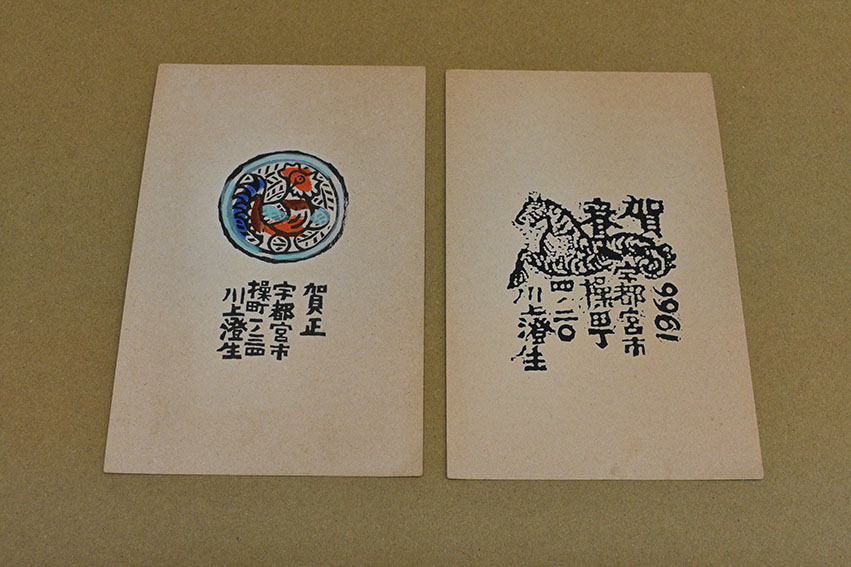 賀正
宇都宮市
操町
川上澄生
賀春
1966
宇都宮市
操町
四ノ二〇
川上澄生